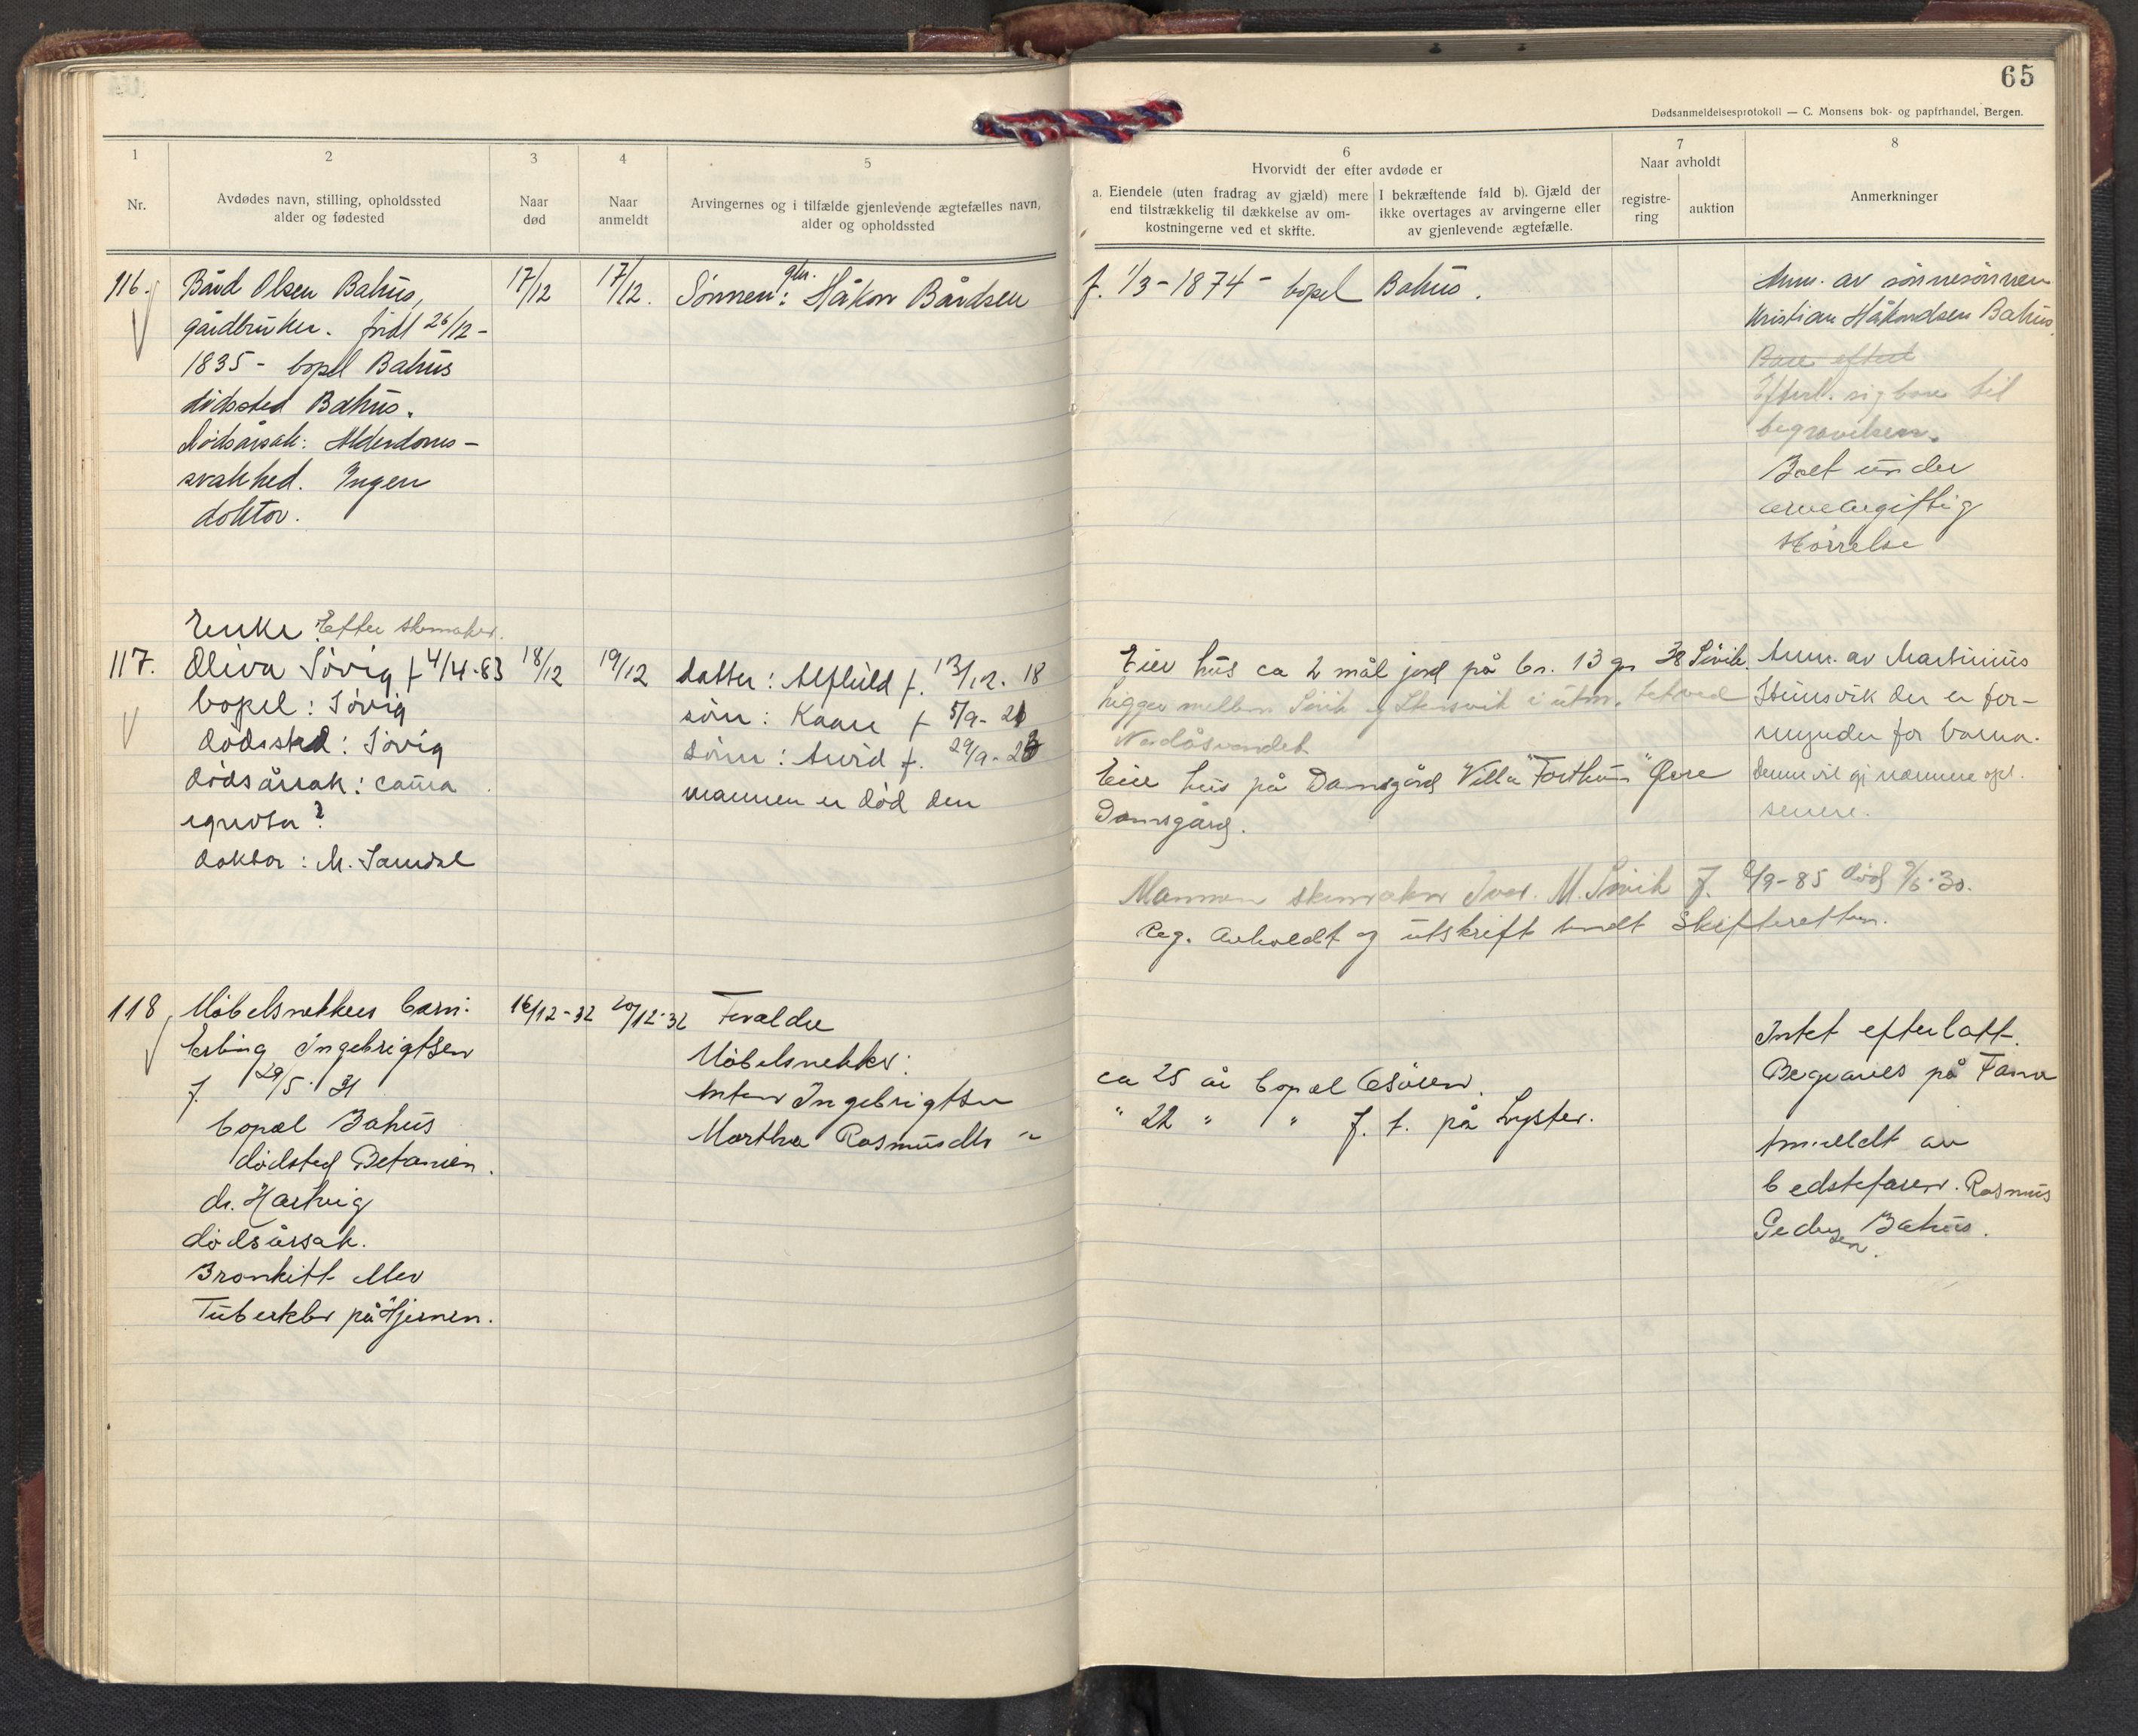 65
Dødsanmeldelsesprotokoll — C. Monsens bok- og papirhandel, Bergen.
1
Nr.
2
Avdødes navn, stilling, opholdssted
alder og fødested
3
Naar
død
4
Naar
anmeldt
5
Arvingernes og i tilfælde gjenlevende ægtefælles navn,
alder og opholdssted
6
Hvorvidt der efter avdøde er
a. Eiendele (uten fradrag av gjæld) mere
end tilstrækkelig til dækkelse av om-
kostningerne ved et skifte.
I bekræftende fald b). Gjæld der
ikke overtages av arvingerne eller
av gjenlevende ægtefælle.
7
Naar avholdt
registre-
ring
auktion
8
Anmerkninger
116.
Bård Olsen Bahus,
gårdbruker. født 26/12-
1835 - bopel Bahus
dødsted Bahus.
Dødsårsak: Alderdoms-
svakhed. Ingen
doktor.
17/12
17/12.
Sønnen: Håkon Bårdsen
f. 1/3-1874 - bopel Bahus.
Anm. av sønnesønnen
Kristian Håkondsen Bahus
Bare efterl
Efterl. sig bare til
begravelsen.
Boet under
arveavgiftig
størrelse
117.
Enke Efter skomaker.
Oliva Søvig f 4/4-83
bopel: Søvig
dødssted: Søvig
dødsårsak:
?
doktor: M. Samdal
18/12
19/12
datter: Alfhild f. 13/12. 18
søn: Kaare f 5/9-21
søn: Arvid f. 29/9-23
mannen er død den
Eier hus ca 2 mål jord på bn. 13 gn 38 Søvik.
ligger mellem Søvik og Stensvik i utm.
Nordåsvandet
Eier hus på Damsgård Villa "Forthun" Øvre
Damsgård.
Mannen skomaker Iver. M. Søvik f. /9-85 død 9/6-30.
Reg. avholdt og utskrift sendt Skifteretten.
Anm. av Martinius
Steinsvik der er for-
mynder for barna.
Denne vil gi nærmere opl.
senere.
118
Møbelsnekkers barn:
Erling Ingebrigtsen
f. 29/5. 31
bopæl Bahus
dødsted Betanien.
dr. Hartvig
dødsårsak.
Bronkitt eller
Tuberkler på Hjernen.
16/12-32
20/12-32
Forældre
Møbelsnekker:
Anton Ingebrigtsen
Martha Rasmusdtr "
ca 25 år bopæl Osøren.
" 22 " " f. f. på Lyster.
Intet efterlatt.
Begraves på Fana
Anmeldt av
bedstefaren. Rasmus
Pedersen Bahus.